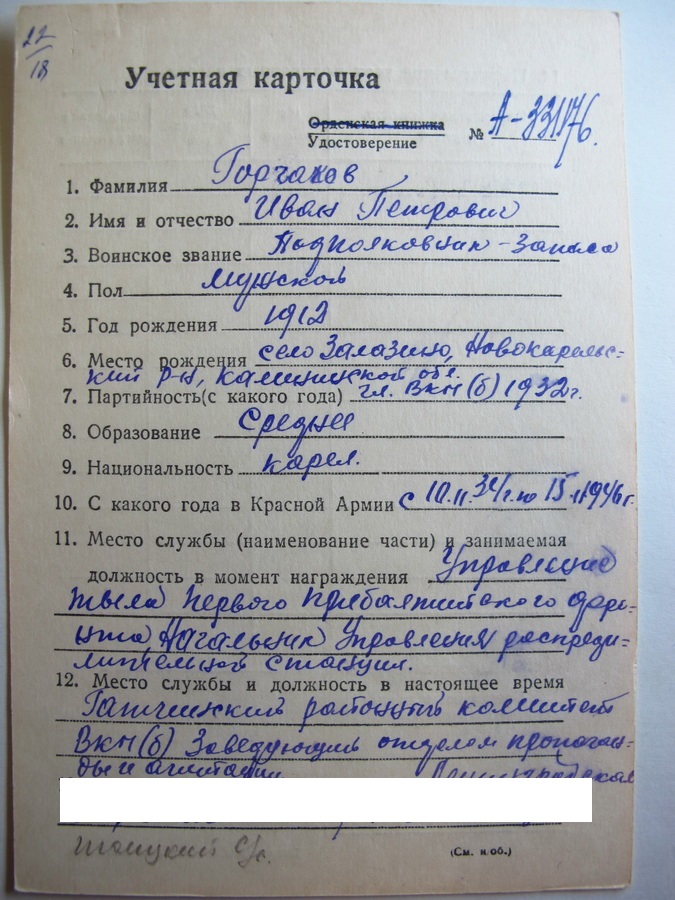 22/18
Учетная карточка
Орденская книжка
Удостоверение № А-331176.
1. Фамилия Горчаков
2. Имя и отчество Иван Петрович
3. Воинское звание Подполковник-запаса
4. Пол мужской
5. Год рождения 1912
6. Место рождения село Залазино, Новокарельс-
кий р-н, Калининской обл.
7. Партийность(с какого года) чл. ВКП(б) 1932г.
8. Образование Среднее
9. Национальность карел.
10. С какого года в Красной Армии с 10.11.34г. по 15. 1946г.
11. Место службы (наименование части) и занимаемая
должность в момент награждения Управление
тыла Первого Прибалтийского фро-
нта Начальник Управления распреде-
лительной станции.
12. Место службы и должность в настоящее время
Гатчинский районный комитет
ВКП(б) Заведующий отделом пропаган-
ды и агитации Ленинградская
(См. н/об.)